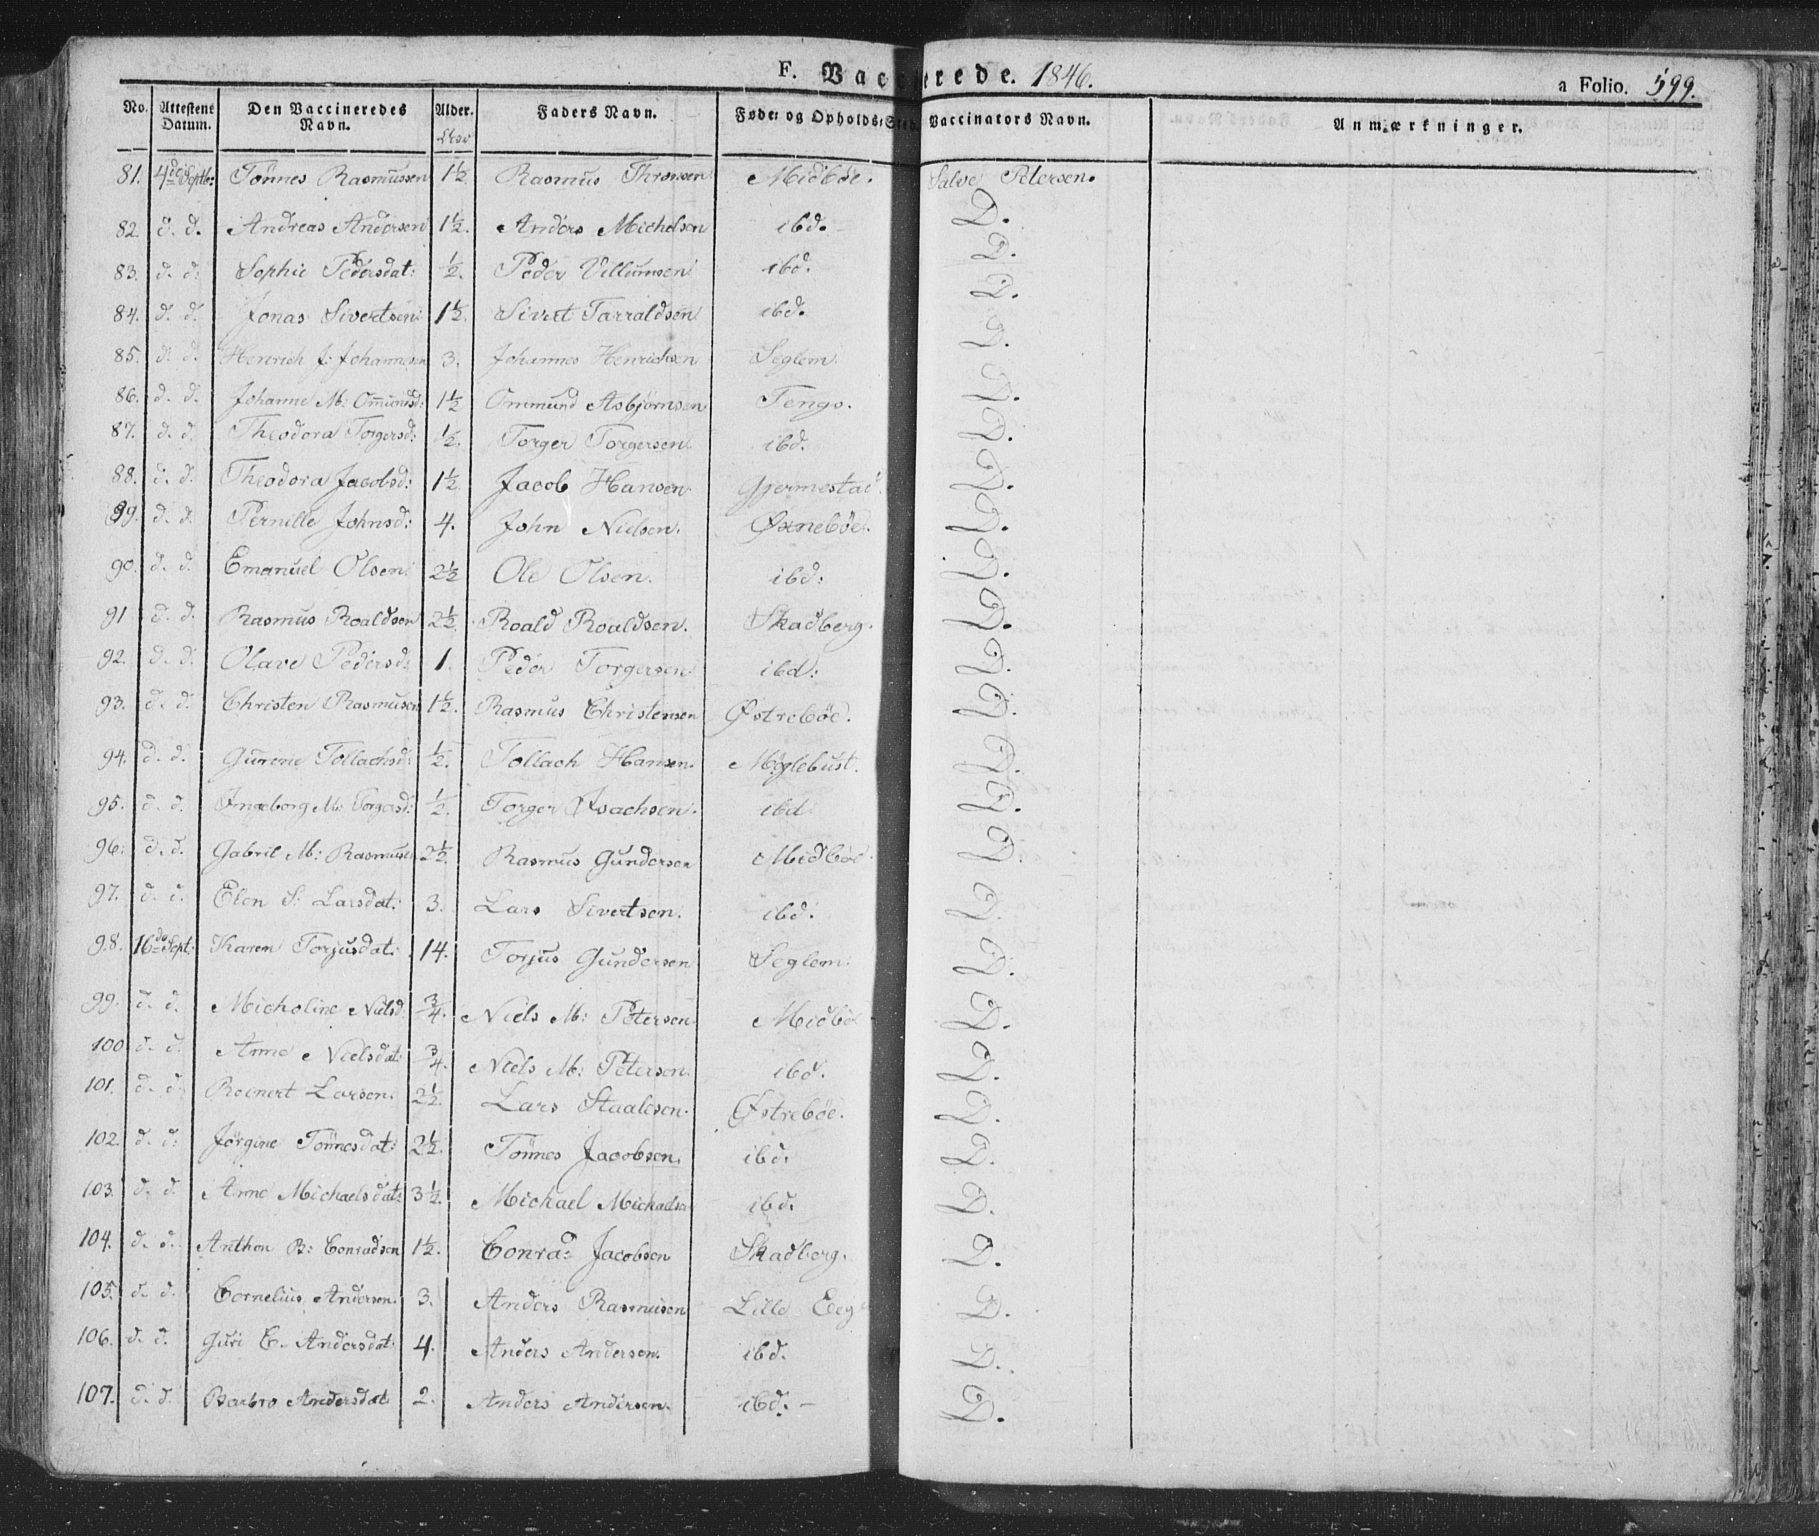 F. Vaccinerede. 1846. a Folio. 599.
No. Attestens Datum. Den Vaccineredes Navn. Alder. Faders Navn. Føde- og Opholds-Sted. Vaccinators Navn. Anmærkninger.
81. 4de Septb: Tönnes Rasmussen 1½ Rasmus Thronsen Midböe. Salve Petersen.
82. d. d. Andreas Andersen 1½. Anders Michelsen ibd. D.
83. d. d. Sophie Pedersdat: ½. Peder Villumsen ibd. D.
84. d. d. Jonas Sivertsen 1½. Sivert Tarraldsen ibd. D.
85. d. d. Henrich J: Johannesen 3. Johannes Henrichsen Seglem. D.
86. d. d. Johanne M: Ommundsd: 1½ Ommund Asbjørnsen Tengs. D.
87. d. d. Theodora Torgersd: ½. Torger Torgersen. ibd. D.
88. d. d. Theodora Jacobsd: 1½. Jacob Hansen Gjermestad. D.
89. d. d. Pernille Johnsd: 4. John Nielsen. Øxneböe. D.
90. d. d. Emanuel Olsen 2½ Ole Olsen. ibd: D.
91 d. d. Rasmus Roaldsen 2½. Roald Roaldsen. Skadberg. D.
92. d. d. Olave Pedersd: 1. Peder Torgersen ibd: D.
93. d. d. Christen Rasmusen 1½. Rasmus Christensen Østreböe. D.
94. d. d. Gurene Tollachsd: ½. Tollach Hansen. Møglebust. D.
95. d. d. Ingeborg M: Torgersd: ½. Torger Isachsen. ibd D.
96. d. d. Gabril M: Rasmusen 2½. Rasmus Gundersen Midböe. D.
97. d. d. Elen S: Larsdat: 3. Lars Sivertsen. ibd. D.
98. 16de Sept: Karen Torjusdat: 14. Torjus Gundersen Seglem. D.
99. d. d. Micholine Nielsd: ¾ Niels M: Petersen Midböe D.
100 d. d. Anne Nielsdat: ¾. Niels M: Petersen. ibd. D.
101. d. d. Reinert Larsen. 2½. Lars Staalesen. Østreböe. D.
102. d. d: Jörgine Tönnesdat: 2½. Tönnes Jacobsen. ibd. D.
103. d. d. Anne Michaelsdat: 3½. Michael Michaelsen ibd. D.
104. d. d. Anthon B: Conradsen 1½. Conrad Jacobsen Skadberg. D.
105. d. d. Cornelius Andersen. 3. Anders Rasmusen Lille Eeg D.
106. d. d. Guri E. Andersdat: 4. Anders Andersen. ibd. D.
107. d. d. Barbro Andersdat 2. Anders Andersen. ibd. D.